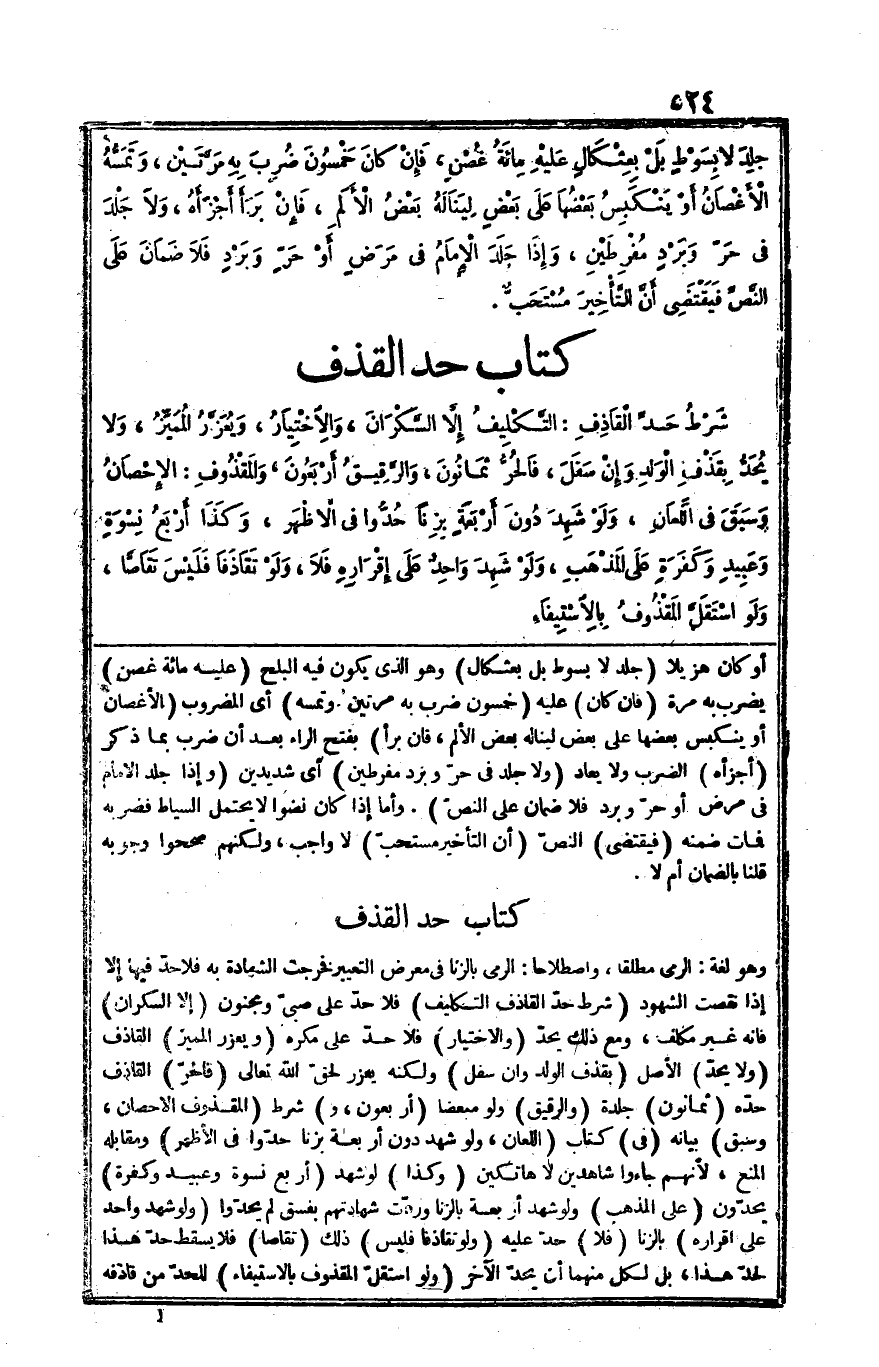 ٥٢٤
جلِدَ لاَ بِسَوْطٍ بَلْ بِعِثْكَالٍ عَلَيْهِ مِائَةُ غُصْنٍ ، فَإِنْ كَانَ خَمْسُونَ ضُرِبَ بِهِ مَرَّتَيْنِ ، وَتَمَسُّهُ
الْأَغْصَانُ أَوْ يَنْكَبِسُ بَعْضُهَا عَلَى بَعْضٍ لِيَنَالَهُ بَعْضُ الْأَلَمِ ، فَإِنْ بَرَأَ أَجْزَأَهُ ، وَلاَ جَلْدَ
فِى حَرٍّ وَبَرْدٍ مُفْرِطَيْنِ ، وَإِذَا جَلَدَ الْإِمَامُ فِى مَرَضٍ أَوْ حَرٍّ وَبَرْدٍ فَلاَ ضَمَانَ عَلَى
النَّصِّ فَيَقْتَضِى أَنَّ التَّأْخِيرَ مُسْتَحَبٌّ .
كتاب حد القذف
شَرْطُ حَدِّ الْقَاذِفِ : التَّكْلِيفُ إِلَّا السَّكْرَانَ ، وَالِاخْتِيَارُ ، وَيُعَزَّرُ الْمُمَيِّزُ ، وَلاَ
يُحَدُّ بِقَذْفِ الْوَلَدِ وَإِنْ سَفَلَ ، فَالْحُرُّ ثَمَانُونَ ، وَالرَّقِيقُ أَرْبَعُونَ ، وَالْمَقْذُوفِ : الْإِحْصَانُ
وَسَبَقَ فِى اللِّعَانِ ، وَلَوْ شَهِدَ دُونَ أَرْبَعَةٍ بِزِنًا حُدُّوا فِى الْأَظْهَرِ ، وَكَذَا أَرْبَعُ نِسْوَةٍ
وَعَبِيدٍ وَكَفَرَةٍ عَلَى الْمَذْهَبِ ، وَلَوْ شَهِدَ وَاحِدٌ عَلَى إِقْرَارِهِ فَلاَ ، وَلَوْ تَقَاذَفَا فَلَيْسَ تَقَاصًّا ،
وَلَو اسْتَقَلَّ الْمَقْذُوفُ بِالِاسْتِيفَاءِ
أو كان هزيلا (جلد لا بسوط بل بعثكال) وهو الذى يكون فيه البلح (عليه مائة غصن)
يضرب به مرة (فان كان) عليه (خمسون ضرب به مرتين ، وتمسه) أى المضروب (الأغصان
أو ينكبس بعضها على بعض ليناله بعض الألم ، فان برأ) بفتح الراء بعد أن ضرب بما ذكر
(أجزأه) الضرب ولا يعاد (ولا جلد فى حرّ وبرد مفرطين) أى شديدين (وإذا جلد الامام
فى مرض أو حرّ وبرد فلا ضمان على النصّ) . وأما إذا كان نضوا لا يحتمل السياط فضربه
فمات ضمنه (فيقتضى) النصّ (أن التأخير مستحبّ) لا واجب ، ولكنهم صححوا وجوبه
قلنا بالضمان أم لا .
كتاب حد القذف
وهو لغة : الرمى مطلقا ، واصطلاحا : الرمى بالزنا فى معرض التعيير فخرجت الشهادة به فلا حدّ فيها إلا
إذا نقصت الشهود (شرط حدّ القاذف التكليف) فلا حدّ على صبىّ ومجنون (إلا السكران)
فانه غير مكلف ، ومع ذلك يحدّ (والاختيار) فلا حدّ على مكره (ويعزر المميز) القاذف
(ولا يحدّ) الأصل (بقذف الولد وان سفل) ولكنه يعزر لحقّ الله تعالى (فالحرّ) القاذف
حدّه (ثمانون) جلدة (والرقيق) ولو مبعضا (أربعون ، و) شرط (المقذوف الاحصان ،
وسبق) بيانه (فى) كتاب (اللعان ، ولو شهد دون أربعة بزنا حدّوا فى الأظهر) ومقابله
المنع ، لأنهم جاءوا شاهدين لا هاتكين (وكذا) لو شهد (أربع نسوة وعبيد وكفرة)
يحدّون (على المذهب) ولو شهد أربعة بالزنا وردّت شهادتهم بفسق لم يحدّوا (ولو شهد واحد
على اقراره) بالزنا (فلا) حدّ عليه (ولو تقاذفا فليس) ذلك (تقاصا) فلا يسقط حدّ هذا
لحدّ هذا ، بل لكل منهما أن يحدّ الآخر (ولو استقلّ المقذوف بالاستيفاء) للحدّ من قاذفه